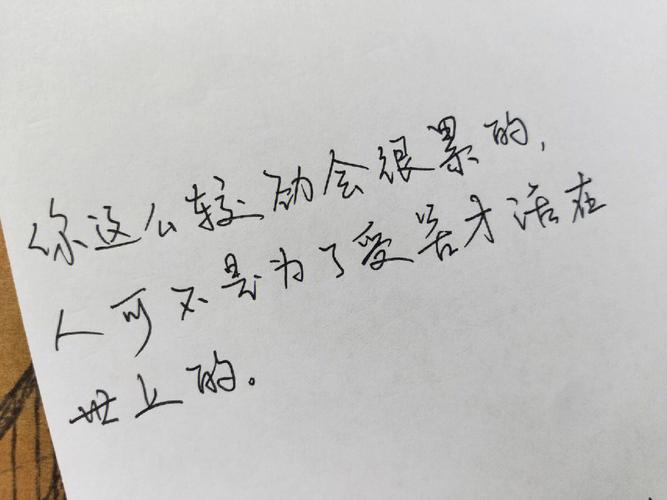 你这么较劲会很累的,
人可不是为了受苦才活在
世上的。